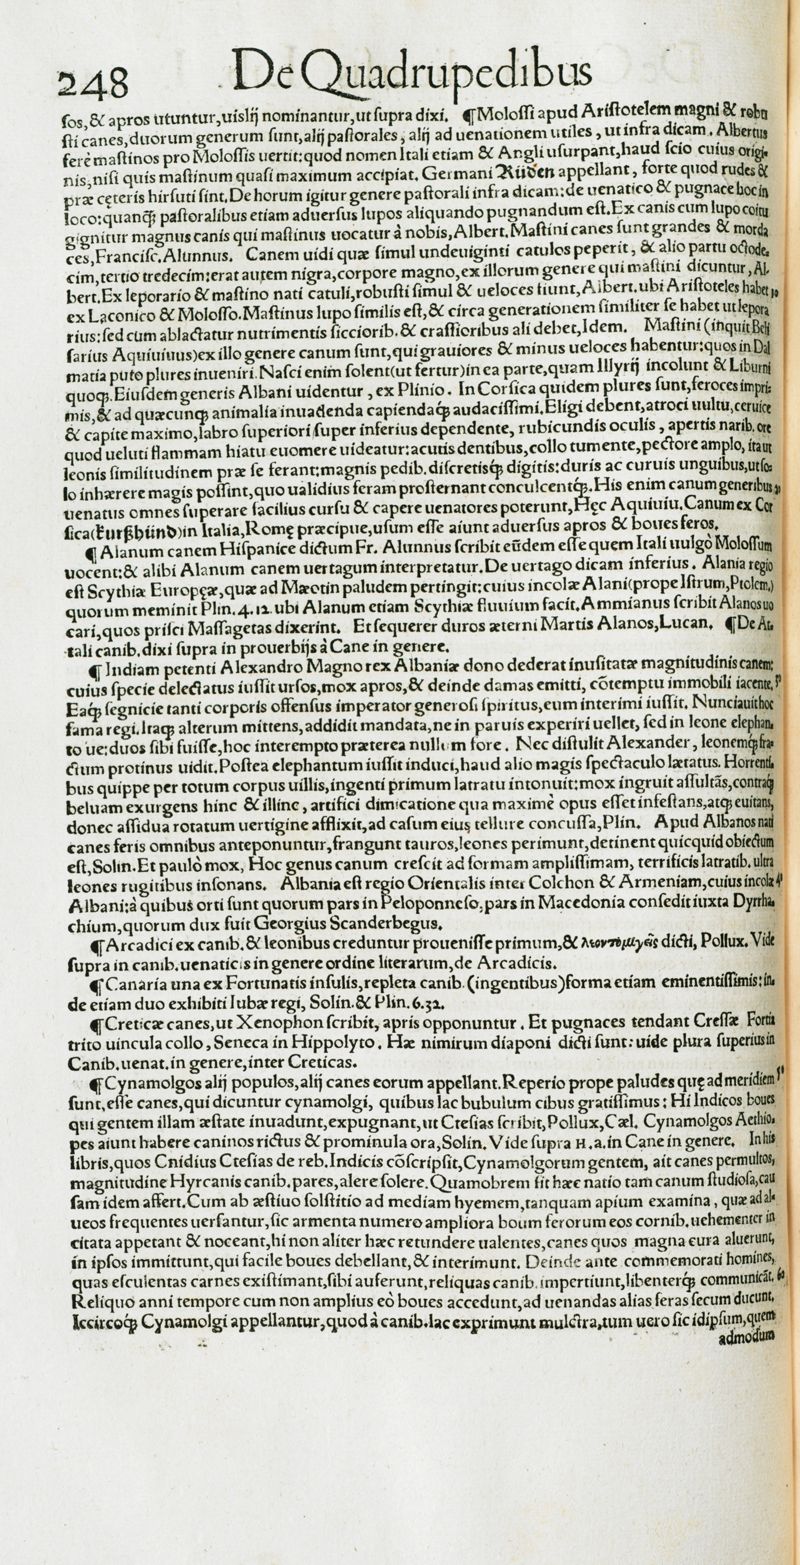 248 De Quadrupedibus
ſos,& apros utuntur,uislij nominantur,ut ſupra dixi. ¶Moloſſi apud Ariſtotelem magni & robu
ſti canes,duorum generum ſunt,alij paſtorales, alij ad uenationem utiles, ut infra dicam. Albertus
ferè maſtinos pro Moloſsis uertit:quod nomen Itali etiam & Angli uſurpant,haud ſcio cuius origi,
nis,niſi quis maſtinum quaſi maximum accipiat. Germani Rüden appellant, forte quod rudes &
præ cęteris hirſuti ſint.De horum igitur genere paſtorali infra dicam:de uenatico & pugnace hoc in
loco:quanq́; paſtoralibus etiam aduerſus lupos aliquando pugnandum eſt.Ex canis cum lupo coitu
gignitur magnus canis qui maſtinus uocatur à nobis,Albert.Maſtini canes ſunt grandes & morda
ces,Franciſc.Alunnus. Canem uidi quæ ſimul undeuiginti catulos peperit, & alio partu octode,
cim,tertio tredecim:erat autem nigra,corpore magno,ex illorum genere qui maſtini dicuntur, Al,
bert.Ex leporario & maſtino nati catuli,robuſti ſimul & ueloces fiunt,Albert.ubi Ariſtoteles habet,
ex Laconico & Moloſſo.Maſtinus lupo ſimilis eſt,& circa generationem ſimiliter ſe habet ut lepora
rius:ſed cum ablactatur nutrimentis ſicciorib.& craſſioribus ali debet,Idem. Maſtini (inquit Beli
ſarius Aquiuiuus)ex illo genere canum ſunt,qui grauiores & minus ueloces habentur:quos in Dal
matia puto plures inueniri.Naſci enim ſolent(ut fertur)in ea parte,quam Illyrij incolunt & Liburni
quoq;.Eiuſdem generis Albani uidentur, ex Plinio. In Corſica quidem plures ſunt,feroces impri,
mis,& ad quæcunq; animalia inuadenda capiendaq́; audaciſſimi.Eligi debent,atroci uultu,ceruice
& capite maximo,labro ſuperiori ſuper inferius dependente, rubicundis oculis, apertis narib.ore
quod ueluti flammam hiatu euomere uideatur:acutis dentibus,collo tumente,pectore amplo, ita ut
leonis ſimilitudinem præ ſe ferant:magnis pedib.diſcretisq́; digitis:duris ac curuis unguibus,ut ſo,
lo inhærere magis poſſint,quo ualidius feram proſternant conculcentq́;.His enim canum generibus
uenatus omnes ſuperare facilius curſu & capere uenatores poterunt,Hęc Aquiuiu.Canum ex Cor
ſica(Kurßhünd)in Italia,Romę præcipue,uſum eſſe aiunt aduerſus apros & boues feros.
¶ Alanum canem Hiſpanice dictum Fr. Alunnus ſcribit eūdem eſſe quem Itali uulgò Moloſſum
uocent:& alibi Alanum canem uertagum interpretatur.De uertago dicam inferius. Alania regio
eſt Scythiæ Europęæ,quæ ad Mæotin paludem pertingit:cuius incolæ Alani(prope Iſtrum,Ptolem.)
quorum meminit Plin.4.12.ubi Alanum etiam Scythiæ fluuium facit.Ammianus ſcribit Alanos uo
cari,quos priſci Maſſagetas dixerint. Et ſequerer duros æterni Martis Alanos,Lucan. ¶De At,
tali canib.dixi ſupra in prouerbijs à Cane in genere.
¶ Indiam petenti Alexandro Magno rex Albaniæ dono dederat inuſitatæ magnitudinis canem:
cuius ſpecie delectatus iuſſit urſos,mox apros,& deinde damas emitti, cōtemptu immobili iacente.
Eaq́; ſegnicie tanti corporis offenſus imperator generoſi ſpiritus,eum interimi iuſſit. Nunciauit hoc
fama regi.Itaq; alterum mittens,addidit mandata,ne in paruis experiri uellet, ſed in leone elephan,
to ue:duos ſibi fuiſſe,hoc interempto præterea nullum fore. Nec diſtulit Alexander, leonemq́; fra,
ctum protinus uidit.Poſtea elephantum iuſſit induci,haud alio magis ſpectaculo lætatus. Horrenti,
bus quippe per totum corpus uillis,ingenti primum latratu intonuit:mox ingruit aſſultãs,contraq́;
beluam exurgens hinc & illinc, artifici dimicatione qua maximè opus eſſet infeſtans,atq; euitans,
donec aſſidua rotatum uertigine afflixit,ad caſum eius tellure concuſſa,Plin. Apud Albanos nati
canes feris omnibus anteponuntur,frangunt tauros,leones perimunt,detinent quicquid obiectum
eſt,Solin.Et paulò mox, Hoc genus canum creſcit ad formam ampliſſimam, terrificis latratib. ultra
leones rugitibus inſonans. Albania eſt regio Orientalis inter Colchon & Armeniam,cuius incolæ
Albani:à quibus orti ſunt quorum pars in Peloponneſo,pars in Macedonia conſedit iuxta Dyrrha,
chium,quorum dux fuit Georgius Scanderbegus.
¶Arcadici ex canib.& leonibus creduntur proueniſſe primum,& λεοντομιγεῖς dicti, Pollux. Vide
ſupra in canib.uenaticis in genere ordine literarum,de Arcadicis.
¶ Canaria una ex Fortunatis inſulis,repleta canib.(ingentibus)forma etiam eminentiſſimis:in,
de etiam duo exhibiti Iubæ regi, Solin.& Plin.6.32.
¶Creticæ canes,ut Xenophon ſcribit, apris opponuntur. Et pugnaces tendant Creſſæ Fortia
trito uincula collo, Seneca in Hippolyto. Hæ nimirum diaponi dicti ſunt: uide plura ſuperius in
Canib.uenat.in genere,inter Creticas.
¶Cynamolgos alij populos,alij canes eorum appellant.Reperio prope paludes quę ad meridiem
ſunt,eſſe canes,qui dicuntur cynamolgi, quibus lac bubulum cibus gratiſſimus: Hi Indicos boues
qui gentem illam æſtate inuadunt,expugnant,ut Cteſias ſcribit,Pollux,Cæl. Cynamolgos Aethio,
pes aiunt habere caninos rictus & prominula ora,Solin. Vide ſupra H.a.in Cane in genere. In his
libris,quos Cnidius Cteſias de reb.Indicis cõſcripſit,Cynamolgorum gentem, ait canes permultos,
magnitudine Hyrcanis canib.pares,alere ſolere.Quamobrem ſit hæc natio tam canum ſtudioſa,cau
ſam idem affert.Cum ab æſtiuo ſolſtitio ad mediam hyemem,tanquam apium examina, quæ ad al,
ueos frequentes uerſantur,ſic armenta numero ampliora boum ferorum eos cornib.uehementer in
citata appetant & noceant,hi non aliter hæc retundere ualentes,canes quos magna cura aluerunt,
in ipſos immittunt,qui facile boues debellant,& interimunt. Deinde ante commemorati homines,
quas eſculentas carnes exiſtimant,ſibi auferunt,reliquas canib.impertiunt,libenterq́; communicāt.
Reliquo anni tempore cum non amplius eò boues accedunt,ad uenandas alias feras ſecum ducunt.
Iccircoq́; Cynamolgi appellantur,quod à canib.lac exprimunt mulctra,tum uero ſic idipſum,quem
admodum